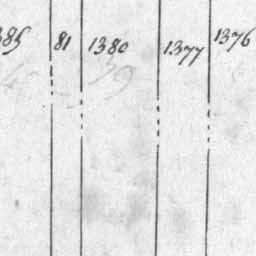 385 81 1380 1377 1376
39